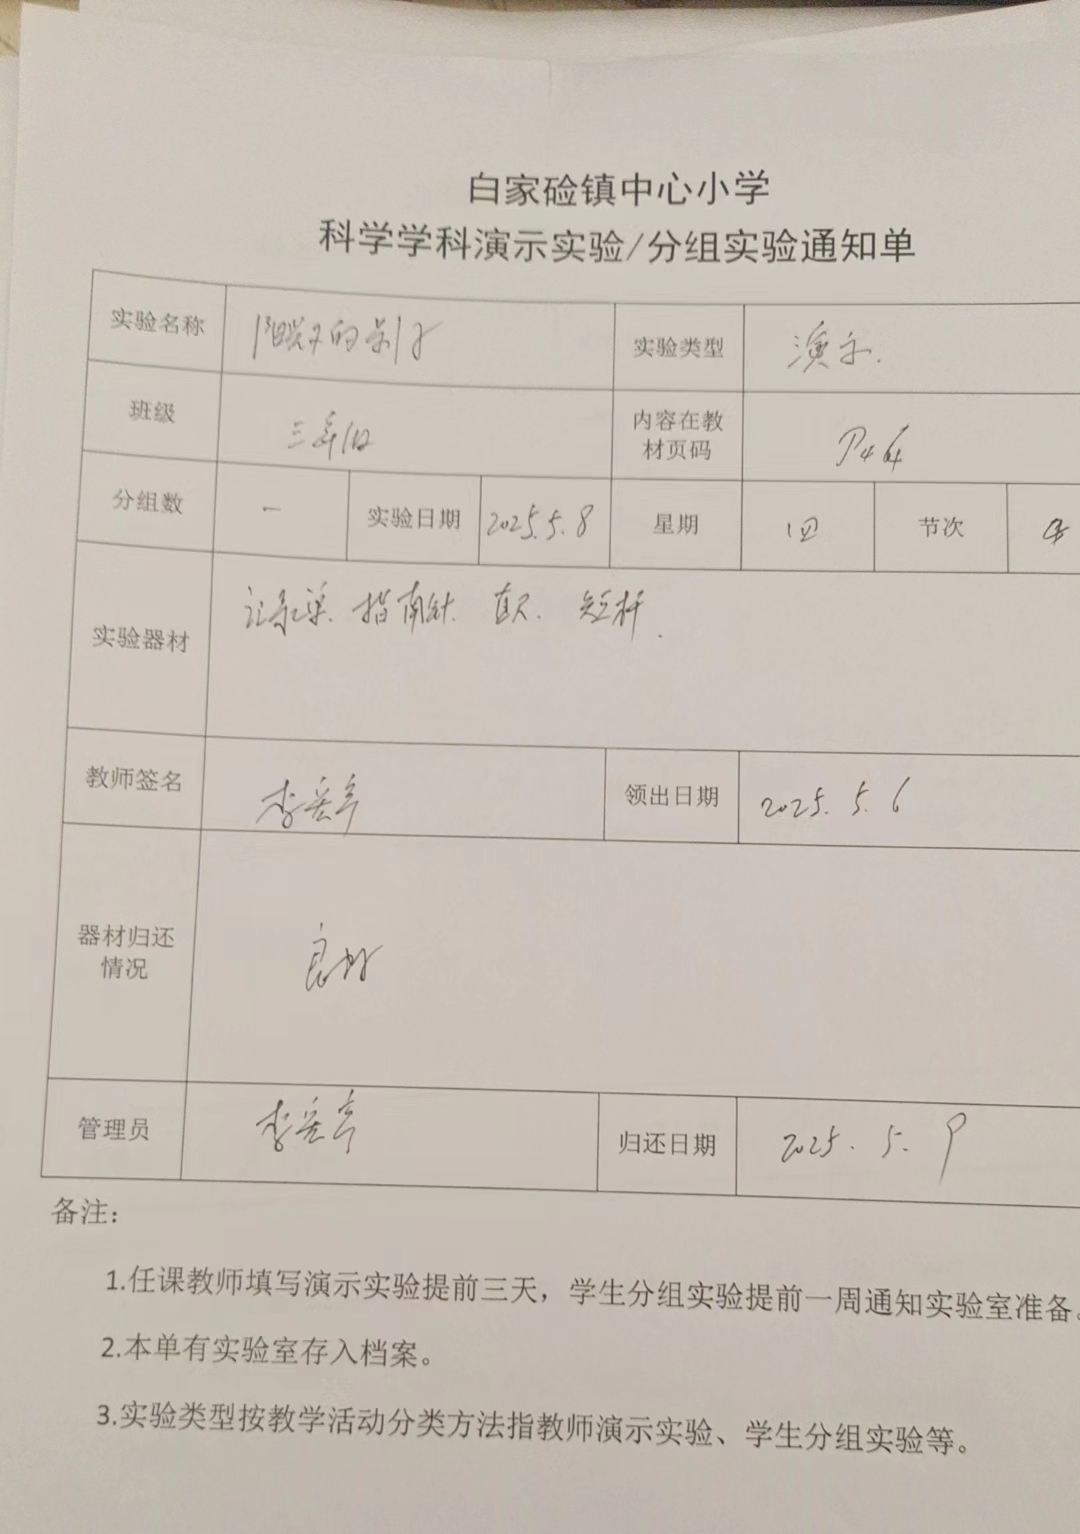 白家硷镇中心小学
科学学科演示实验/分组实验通知单
实验名称 阳光下的影子 实验类型 演示.
班级 三年级 内容在教材页码 P44
分组数 一 实验日期 2025.5.8 星期 四 节次
实验器材 记录单. 指南针. 直尺. 短杆.
教师签名 李 领出日期 2025.5.6
器材归还情况 良好
管理员 李 归还日期 2025.5.9
备注：
1.任课教师填写演示实验提前三天，学生分组实验提前一周通知实验室准备。
2.本单有实验室存入档案。
3.实验类型按教学活动分类方法指教师演示实验、学生分组实验等。